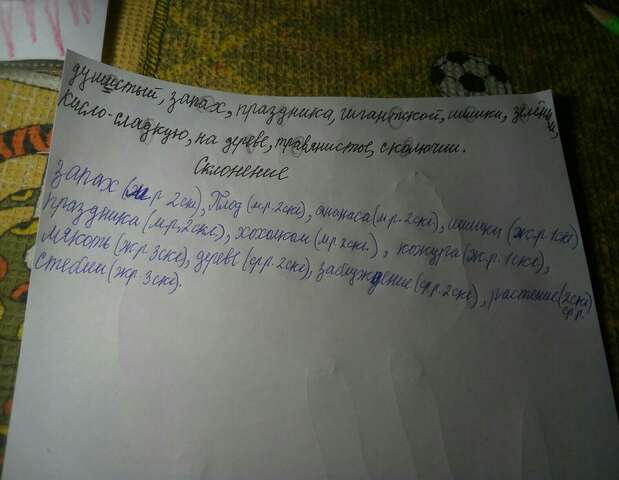 душистый, запах, праздника, гигантской, шишки, зелёный,
кисло-сладкую, на дереве, травянистое, с колючии.
Склонение
запах (м.р 2скл), Плод (м.р. 2скл), ананаса (м.р. 2скл), шишки (ж.р. 1скл)
праздника (м.р, 2скл.), хохолком (м.р 2скл.), кожура (ж.р. 1скл),
мякоть (ж.р. 3скл), дерево (ср.р. 2скл), заблуждение (ср.р. 2скл), растение (2скл)
ср.р.
стебли (ж.р. 3скл).